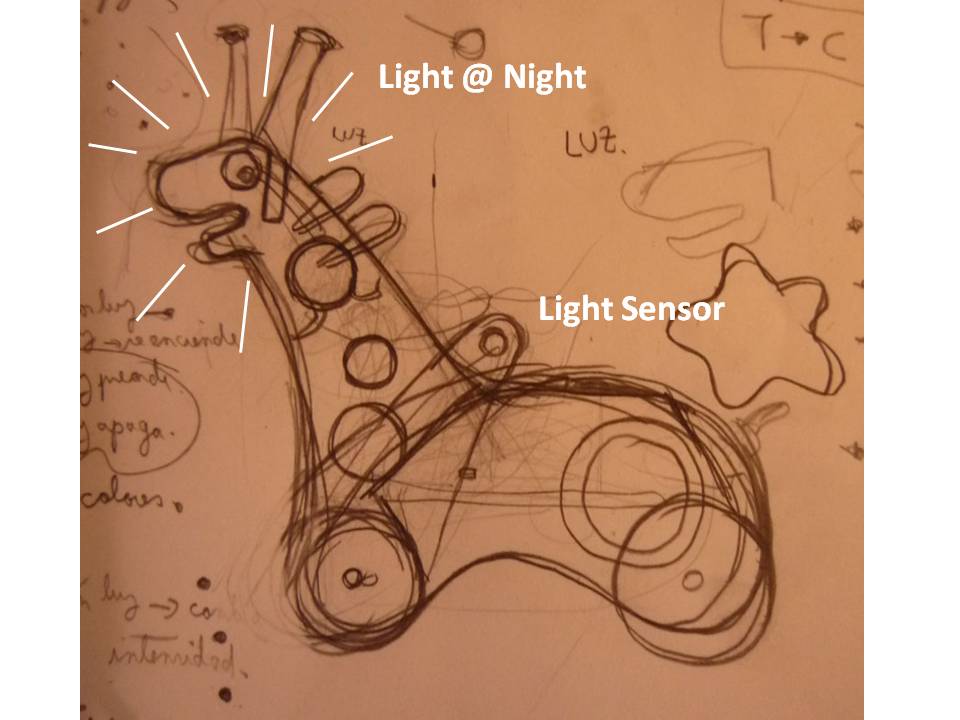 T → C
Light @ Night
LUZ
LUZ.
Light Sensor
luz →
→ se enciende
apaga.
colores.
luz → co
intensidad.